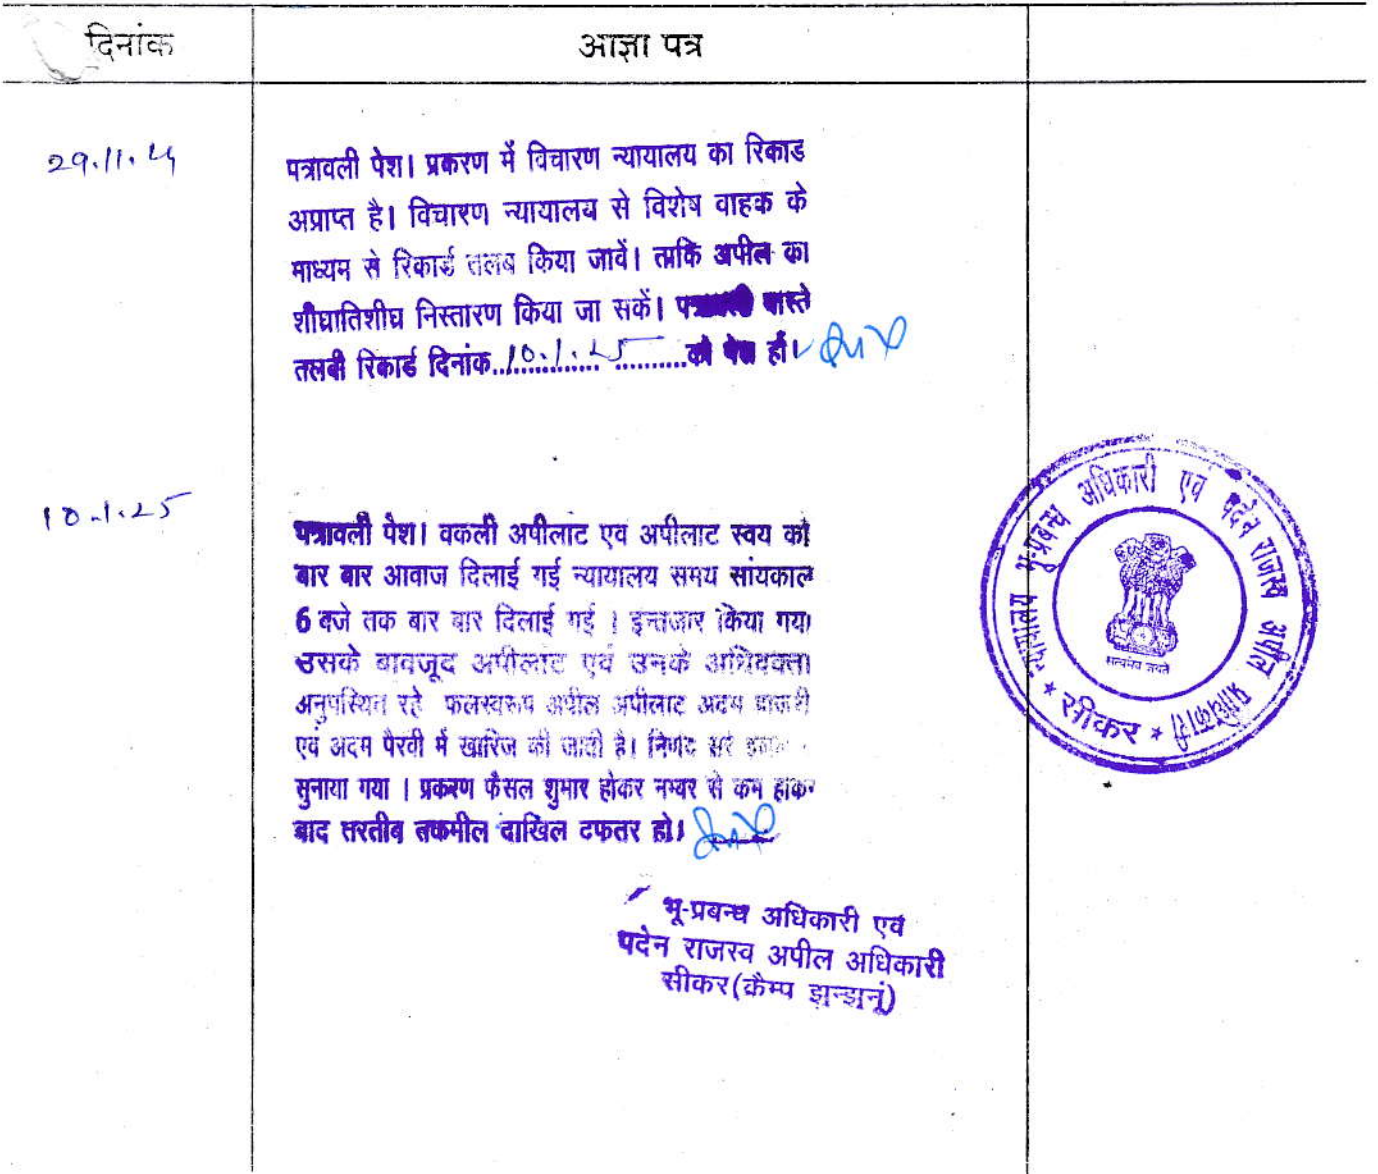 दिनांक
आज्ञा पत्र
29.11.24
पत्रावली पेश। प्रकरण में विचारण न्यायालय का रिकाड
अप्राप्त है। विचारण न्यायालय से विशेष वाहक के
माध्यम से रिकार्ड तलब किया जावें। ताकि अपील का
शीघ्रातिशीघ्र निस्तारण किया जा सकें। पत्रावली वास्ते
तलबी रिकार्ड दिनांक..10.1.25..........को पेश हो।
10.1.25
पत्रावली पेश। वकली अपीलाट एव अपीलाट स्वय को
बार बार आवाज दिलाई गई न्यायालय समय सांयकाल
6 बजे तक बार बार दिलाई गई । इन्तजार किया गया
उसके बावजूद अपीलाट एवं उनके अधिवक्ता
अनुपस्थित रहे फलस्वरूप अपील अपीलाट अदम हाजरी
एवं अदम पैरवी में खारिज की जाती है। निर्णय सरे
सुनाया गया । प्रकरण फैसल शुमार होकर नम्बर से कम होकर
बाद तरतीब तकमील दाखिल दफतर हो।
भू-प्रबन्ध अधिकारी एवं
पदेन राजस्व अपील अधिकारी
सीकर(कैम्प झुन्झुनूं)
न्यायालय भू-प्रबन्ध अधिकारी एवं पदेन राजस्व अपील प्राधिकारी
* सीकर *
सत्यमेव जयते